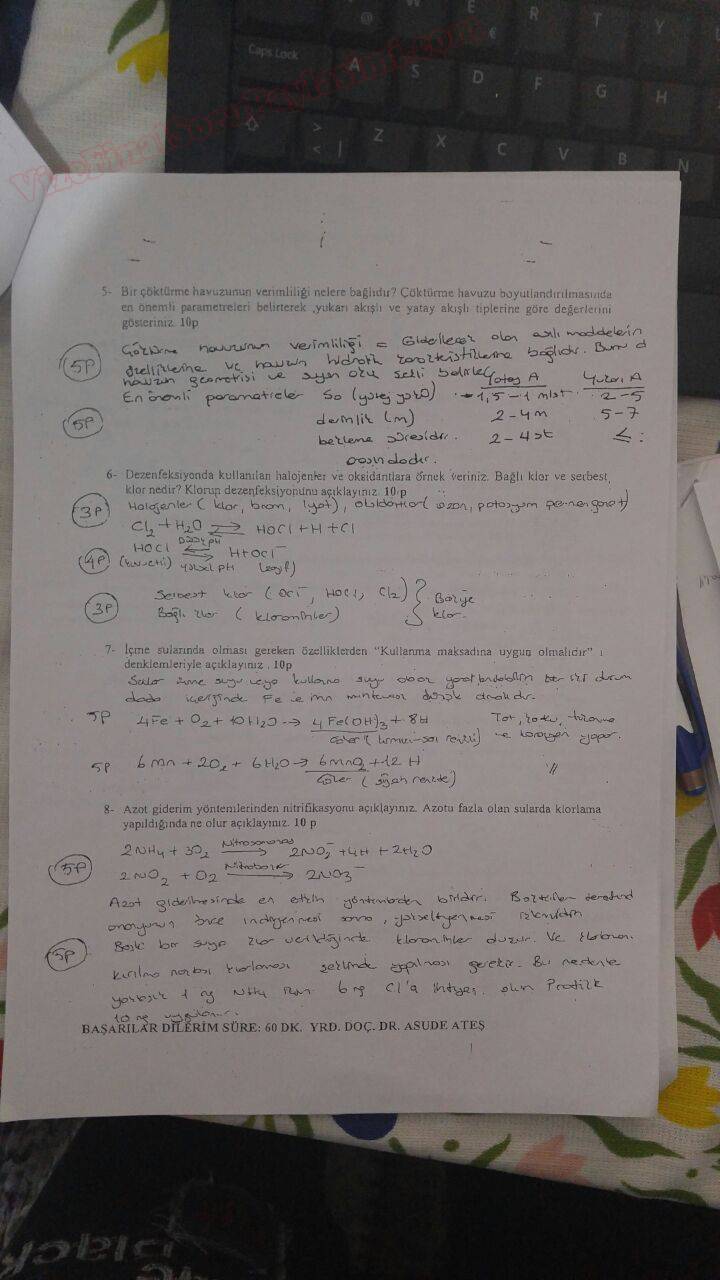 Caps Lock
W E R T Y
@ €
A S D F G H
> < |
Z X C V B N
VizeFinal
5- Bir çöktürme havuzunun verimliliği nelere bağlıdır? Çöktürme havuzu boyutlandırılmasında
en önemli parametreleri belirterek ,yukarı akışlı ve yatay akışlı tiplerine göre değerlerini
gösteriniz. 10p
5P
havuzunun verimliliği = olan maddelerin
ve havuzun hidrolik bağlıdır. Bunu d
havuzun geometrisi ve şekli belirler
En önemli parametreler So (yüzey yükü) 1,5-1 m/st 2-5
Yatay A Yukarı A
5P
derinlik (m) 2-4m 5-7
bekleme süresidir. 2-4st ≤ :
6- Dezenfeksiyonda kullanılan halojenler ve oksidantlara örnek veriniz. Bağlı klor ve serbest
klor nedir? Klorun dezenfeksiyonunu açıklayınız. 10p
3P
Halojenler ( klor, brom, iyot), oksidantlar( ozon, potasyum permanganat)
Cl2 + H2O ⇌ HOCl + H + Cl
4P
HOCl ⇌ H+OCl⁻
(kuvvetli) yüksek pH (zayıf)
3P
Serbest klor ( OCl⁻, HOCl, Cl2)
Bağlı klor ( kloraminler)
Bakiye
klor.
7- İçme sularında olması gereken özelliklerden "Kullanma maksadına uygun olmalıdır" ı
denklemleriyle açıklayınız . 10p
Sular içme suyu veya kullanma suyu olarak her iki durum
dada içeriğinde Fe ve mn düşük olmalıdır.
5P
4Fe + O2 + 10H2O → 4Fe(OH)3 + 8H
Tat, koku, ve korozyon yapar.
Çöker ( kırmızı-sarı renkli)
5P
6Mn + 2O2 + 6H2O → 6MnO2 + 12 H
Çöker ( siyah renkte) "
8- Azot giderim yöntemlerinden nitrifikasyonu açıklayınız. Azotu fazla olan sularda klorlama
yapıldığında ne olur açıklayınız. 10 p
5P
2NH4 + 3O2 Nitrosomonas → 2NO2⁻ + 4H + 2H2O
2NO2 + O2 Nitrobakter → 2NO3⁻
Azot giderilmesinde en etkin yöntemlerden biridir. Bakteriler tarafınd
önce indirgenmesi sonra, yükseltgenmesi işlemidir.
5P
Böyle bir suya klor verildiğinde kloraminler oluşur. Ve
kırılma noktası klorlaması şeklinde yapılması gerekir. Bu nedenle
yaklaşık 1 mg NH4 için 6 mg Cl'a ihtiyaç olur Pratikte
10 mg uygulanır.
BAŞARILAR DİLERİM SÜRE: 60 DK. YRD. DOÇ. DR. ASUDE ATEŞ